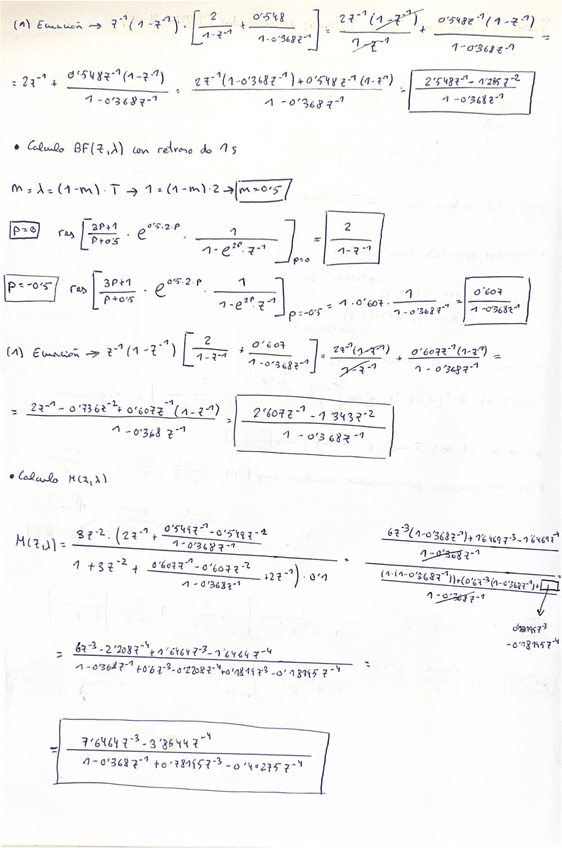 (1) Ecuación → z⁻¹(1-z⁻¹) · [2/(1-z⁻¹) + 0'548/(1-0'368z⁻¹)] = 2z⁻¹(1-z⁻¹)/(1-z⁻¹) + 0'548z⁻¹(1-z⁻¹)/(1-0'368z⁻¹) =
= 2z⁻¹ + 0'548z⁻¹(1-z⁻¹)/(1-0'368z⁻¹) = 2z⁻¹(1-0'368z⁻¹)+0'548z⁻¹(1-z⁻¹)/(1-0'368z⁻¹) = 2'548z⁻¹-1'285z⁻²/(1-0'368z⁻¹)
• Calculo BF(z,λ) con retraso do 1s
m = λ = (1-m)·T → 1 = (1-m)·2 → m=0'5
P=0 res [3P+1/(P+0'5) · e^(0'5·2·P) · 1/(1-e^(2P)·z⁻¹)]P=0 = 2/(1-z⁻¹)
P=-0'5 res [3P+1/(P+0'5) · e^(0'5·2·P) · 1/(1-e^(2P)·z⁻¹)]P=-0'5 = 1·0'607 · 1/(1-0'368z⁻¹) = 0'607/(1-0'368z⁻¹)
(1) Ecuación → z⁻¹(1-z⁻¹) [2/(1-z⁻¹) + 0'607/(1-0'368z⁻¹)] = 2z⁻¹(1-z⁻¹)/(1-z⁻¹) + 0'607z⁻¹(1-z⁻¹)/(1-0'368z⁻¹) =
= 2z⁻¹-0'736z⁻²+0'607z⁻¹(1-z⁻¹)/(1-0'368z⁻¹) = 2'607z⁻¹-1'343z⁻²/(1-0'368z⁻¹)
• Calculo M(z,λ)
M(z,λ) = 3z⁻² · (2z⁻¹ + 0'549z⁻¹-0'549z⁻²/(1-0'368z⁻¹)) / 1+3z⁻² + (0'607z⁻¹-0'607z⁻²/(1-0'368z⁻¹) +2z⁻¹)·0'1 = 6z⁻³(1-0'368z⁻¹)+1'6469z⁻³-1'6469z⁻⁴
= 6z⁻³-2'208z⁻⁴+1'6464z⁻³-1'6464z⁻⁴/(1-0'368z⁻¹+0'6z⁻³-0'2208z⁻⁴+0'1819z⁻³-0'18195z⁻⁴) =
= 7'6464z⁻³-3'8544z⁻⁴/(1-0'368z⁻¹+0'78195z⁻³-0'40275z⁻⁴)